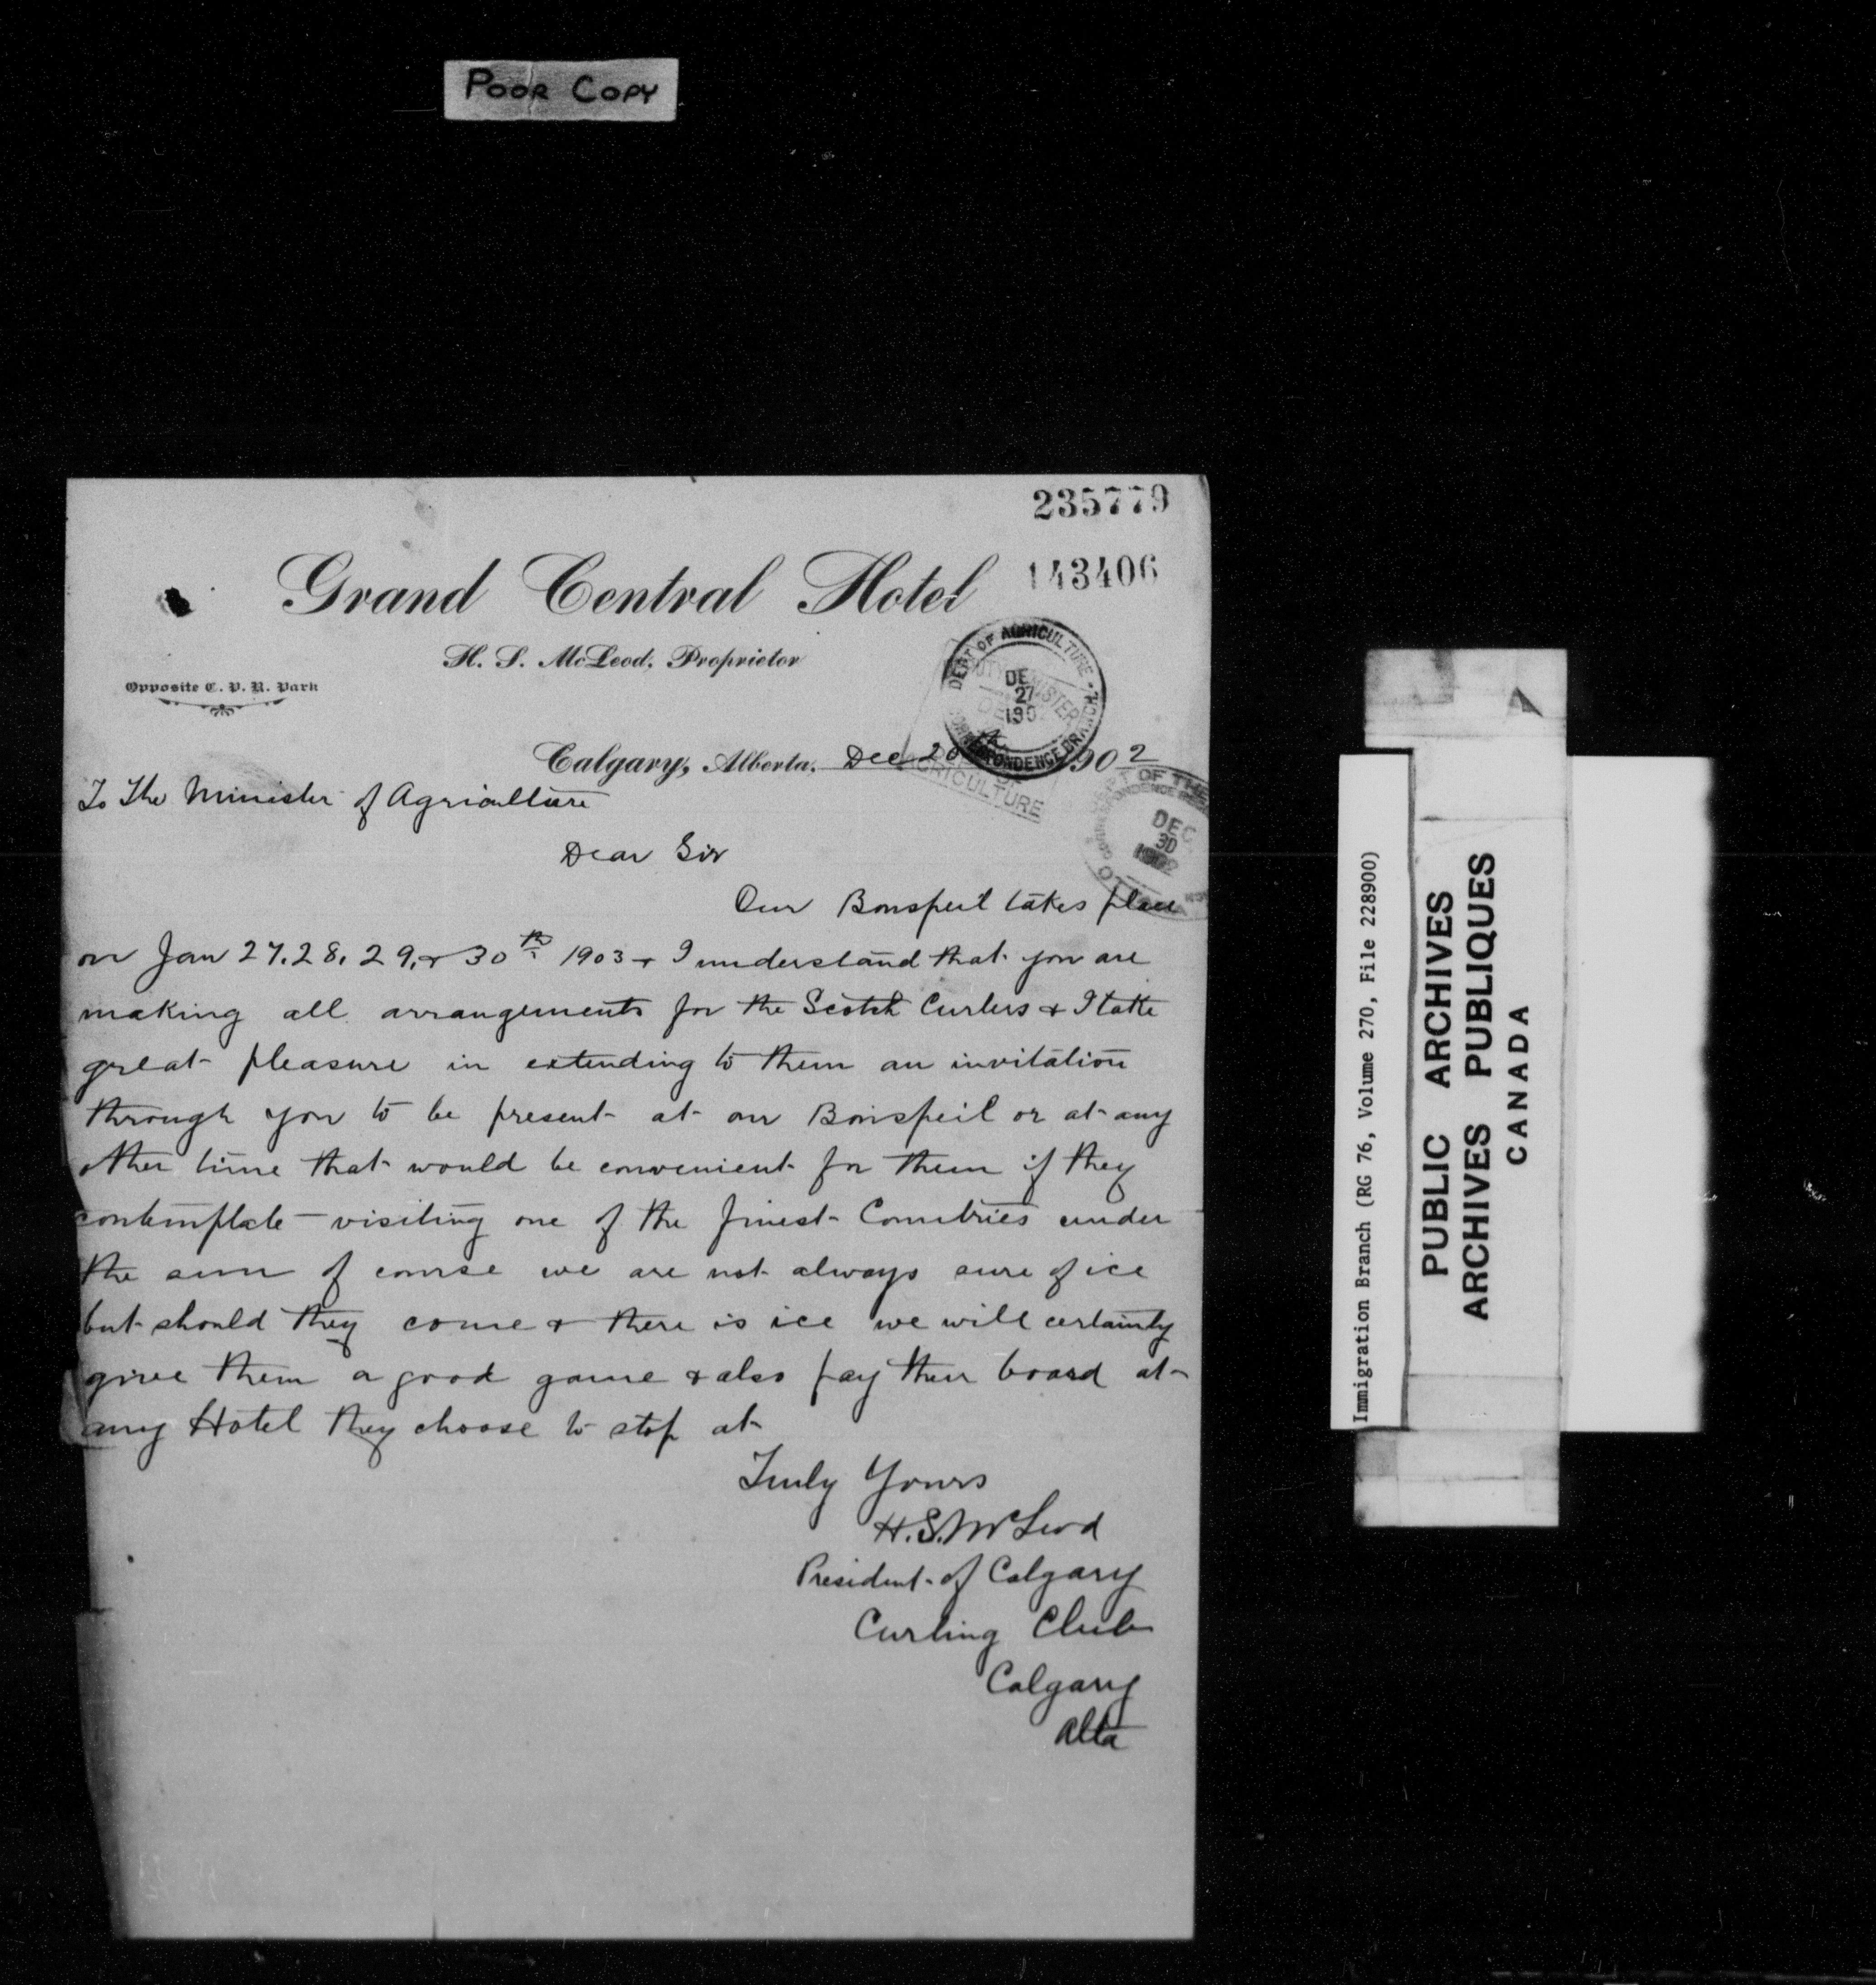 POOR COPY
235779
143406
Grand Central Hotel
H. S. McLeod, Proprietor
Opposite C. P. R. Park
DEPT OF AGRICULTURE
DE
27
190
CORRESPONDENCE BRANCH
AGRICULTURE
Calgary, Alberta, Dec 20 1902
OF THE
DEC
30
1902
To The Minister of Agriculture
Dear Sir
Our Bonspeil takes place
on Jan 27. 28. 29. & 30th 1903 & I understand that you are
making all arrangements for the Scotch Curlers & I take
great pleasure in extending to them an invitation
through you to be present at our Bonspeil or at any
other time that would be convenient for them if they
contemplate visiting one of the finest Countries under
the sun of course we are not always sure of ice
but should they come & there is ice we will certainly
give them a good game & also pay their board at
any Hotel they choose to stop at
Truly Yours
H. S. McLeod
President of Calgary
Curling Club
Calgary
Alta
Immigration Branch (RG 76, Volume 270, File 228900)
PUBLIC ARCHIVES
ARCHIVES PUBLIQUES
CANADA